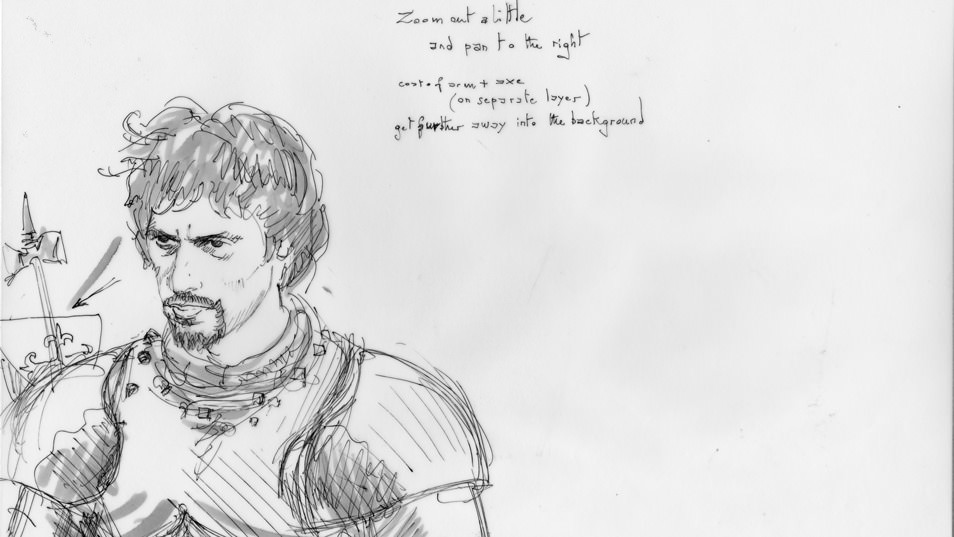 Zoom out a little
and pan to the right
coat of arm + axe
(on separate layer)
get further away into the background